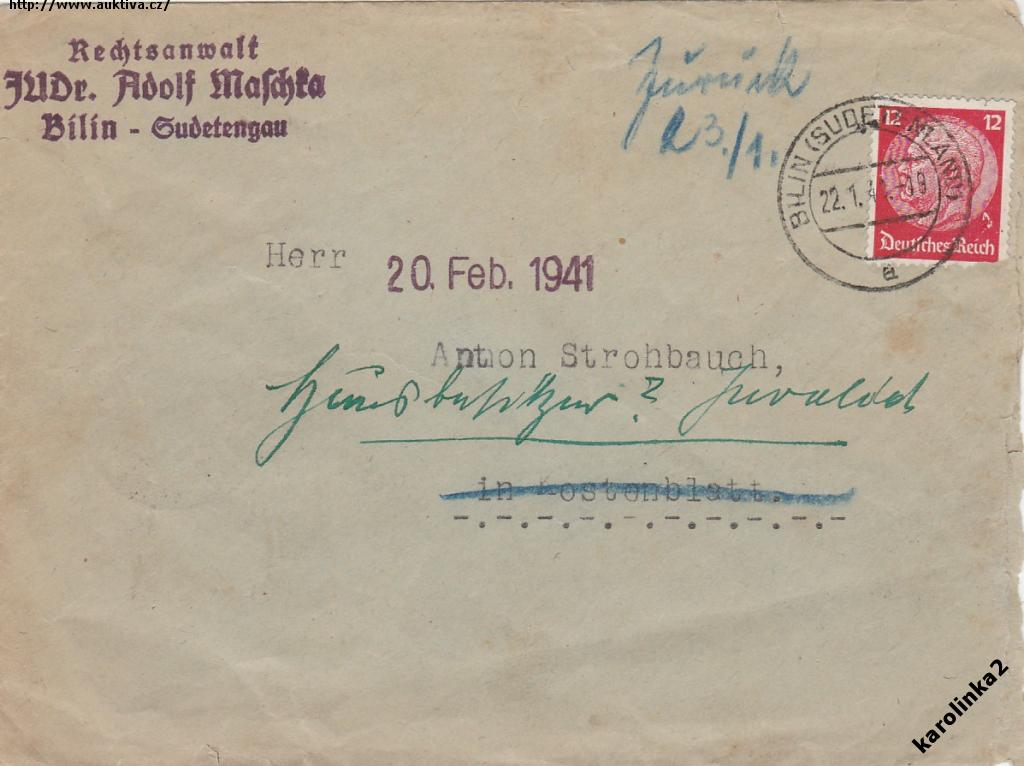 http://www.auktiva.cz/
Rechtsanwalt
JUDr. Adolf Maschka
Bilin - Sudetengau
Zurück
23./1.
12 12
Deutsches Reich
BILIN (SUDETENLAND)
22.1.4
a
Herr
20. Feb. 1941
Anton Strohbauch,
Hausbesitzer?
in Kostenblatt.
-.-.-.-.-.-.-.-.-.-
karolinka2